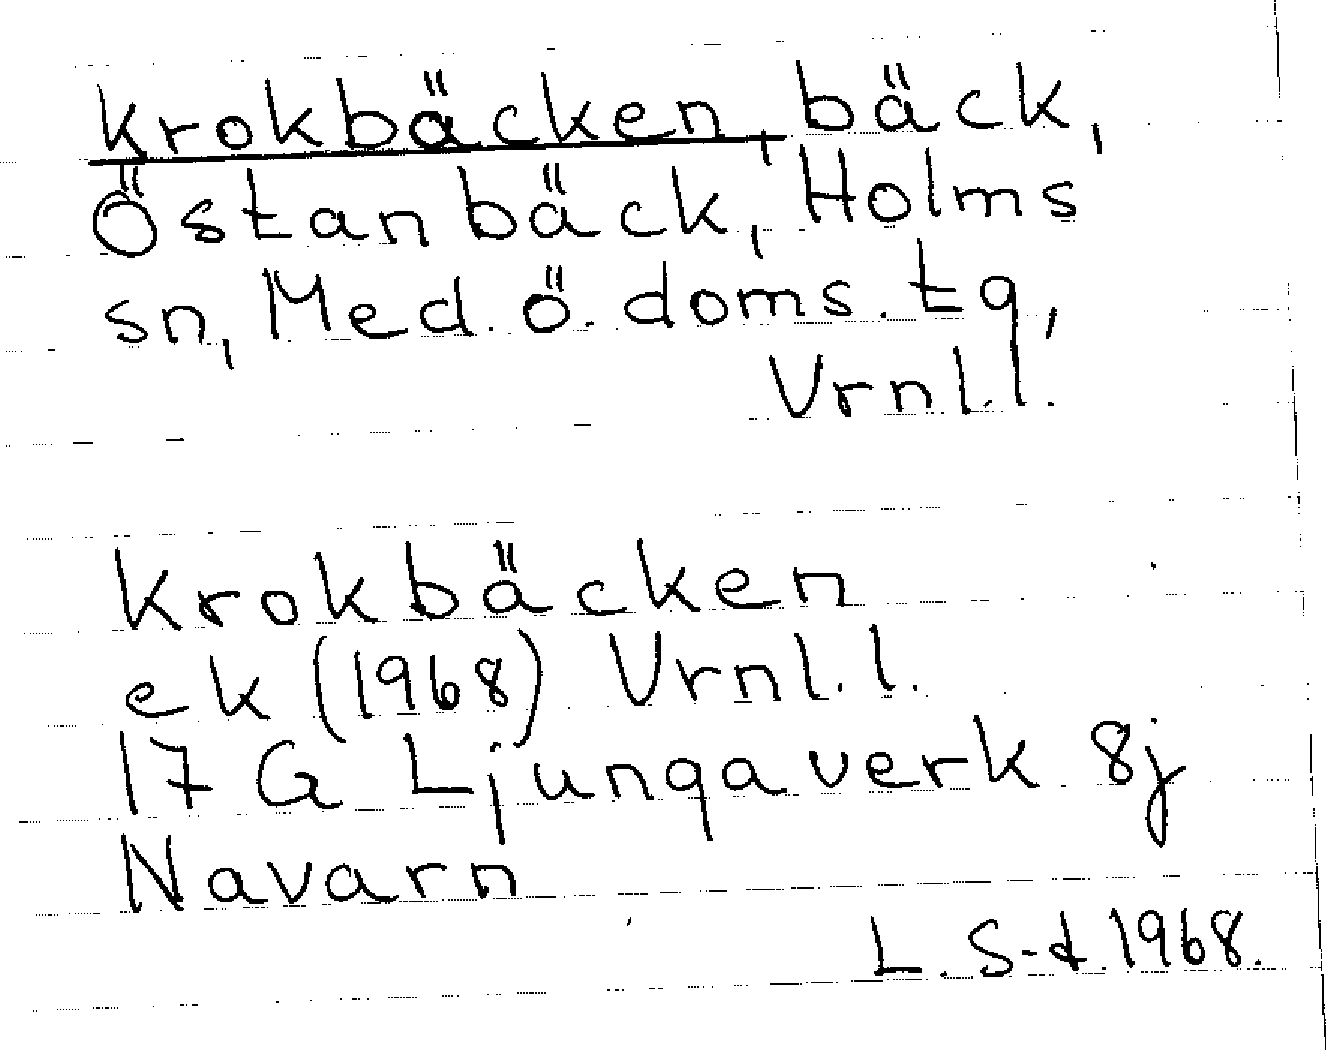 Krokbäcken, bäck,
Östanbäck, Holms
sn, Med. ö. doms. tg,
Vrnl.l.
Krokbäcken
ek (1968) Vrnl.l.
17 G Ljungaverk 8j
Navarn
L. S-d. 1968.